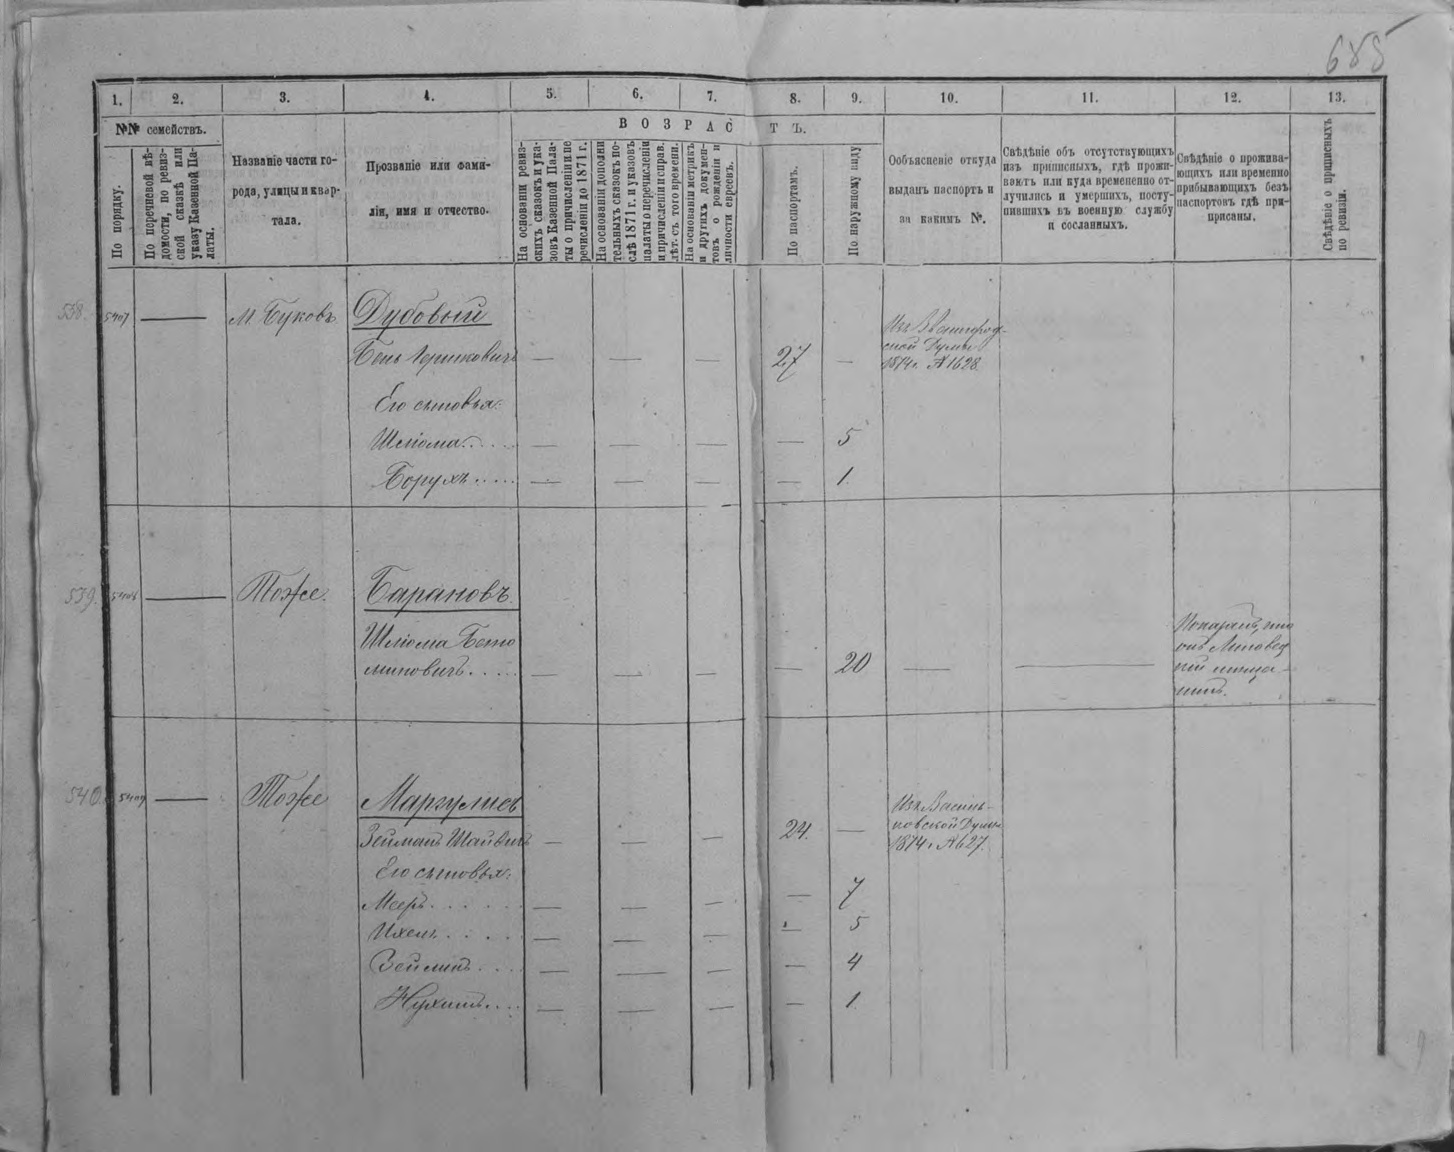 685
1. 2. 3. 4. 5. 6. 7. 8. 9. 10. 11. 12. 13.
№№ семействъ.
По порядку.
По перечневой вѣ-
домости, по ревиз-
ской сказкѣ или
указу Казенной Па-
латы.
Названіе части го-
рода, улицы и квар-
тала.
Прозваніе или фами-
лія, имя и отчество.
ВОЗРАСТЪ.
На основаніи ревиз-
скихъ сказокъ и ука-
зовъ Казенной Пала-
ты о причисленіи и пе
речисленіи до 1871 г.
На основаніи дополни
тельныхъ сказокъ по-
слѣ 1871 г. и указовъ
палаты о перечисленіи
и причисленіи и справ.
лѣт. съ того времени.
На основаніи метрикъ
и другихъ докумен-
товъ о рожденіи и
личности евреевъ.
По паспортамъ.
По наружному виду
Ообъясненіе откуда
выданъ паспортъ и
за какимъ №.
Свѣдѣніе объ отсутствующихъ
изъ приписныхъ, гдѣ прожи-
ваютъ или куда времененно от-
лучились и умершихъ, посту-
пившихъ въ военную службу
и сосланныхъ.
Свѣдѣніе о прожива-
ющихъ или временно
прибывающихъ безъ
паспортовъ гдѣ при-
приcаны.
Свѣдѣніе о приписныхъ
по ревизіи.
538. 5407 — М. Буковъ Дубовый
Бень Гершковичъ — — — 27 —
Изъ Звенигород-
ской Думы
1874 г. № 1628.
Его сыновья:
Шліома — — — — 5
Борухъ — — — — 1.
539. 5408 — Тоже. Барановъ
Шліома
— — — — 20 — —
540. 5409 — Тоже Маргулисъ
Зейманъ — — — 24. —
Изъ Василь-
ковской Думы
1874 г. № 627.
Его сыновья:
Мееръ — — — — 7
— — — — 5
Зейликъ — — — — 4
Нухимъ — — — — 1.